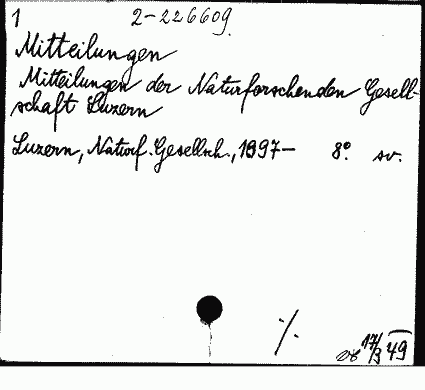 1 2-226609.
Mitteilungen
Mitteilungen der Naturforschenden Gesell-
schaft Luzern
Luzern, Naturf. Gesellsch., 1897- 8º. sv.
17/3 49